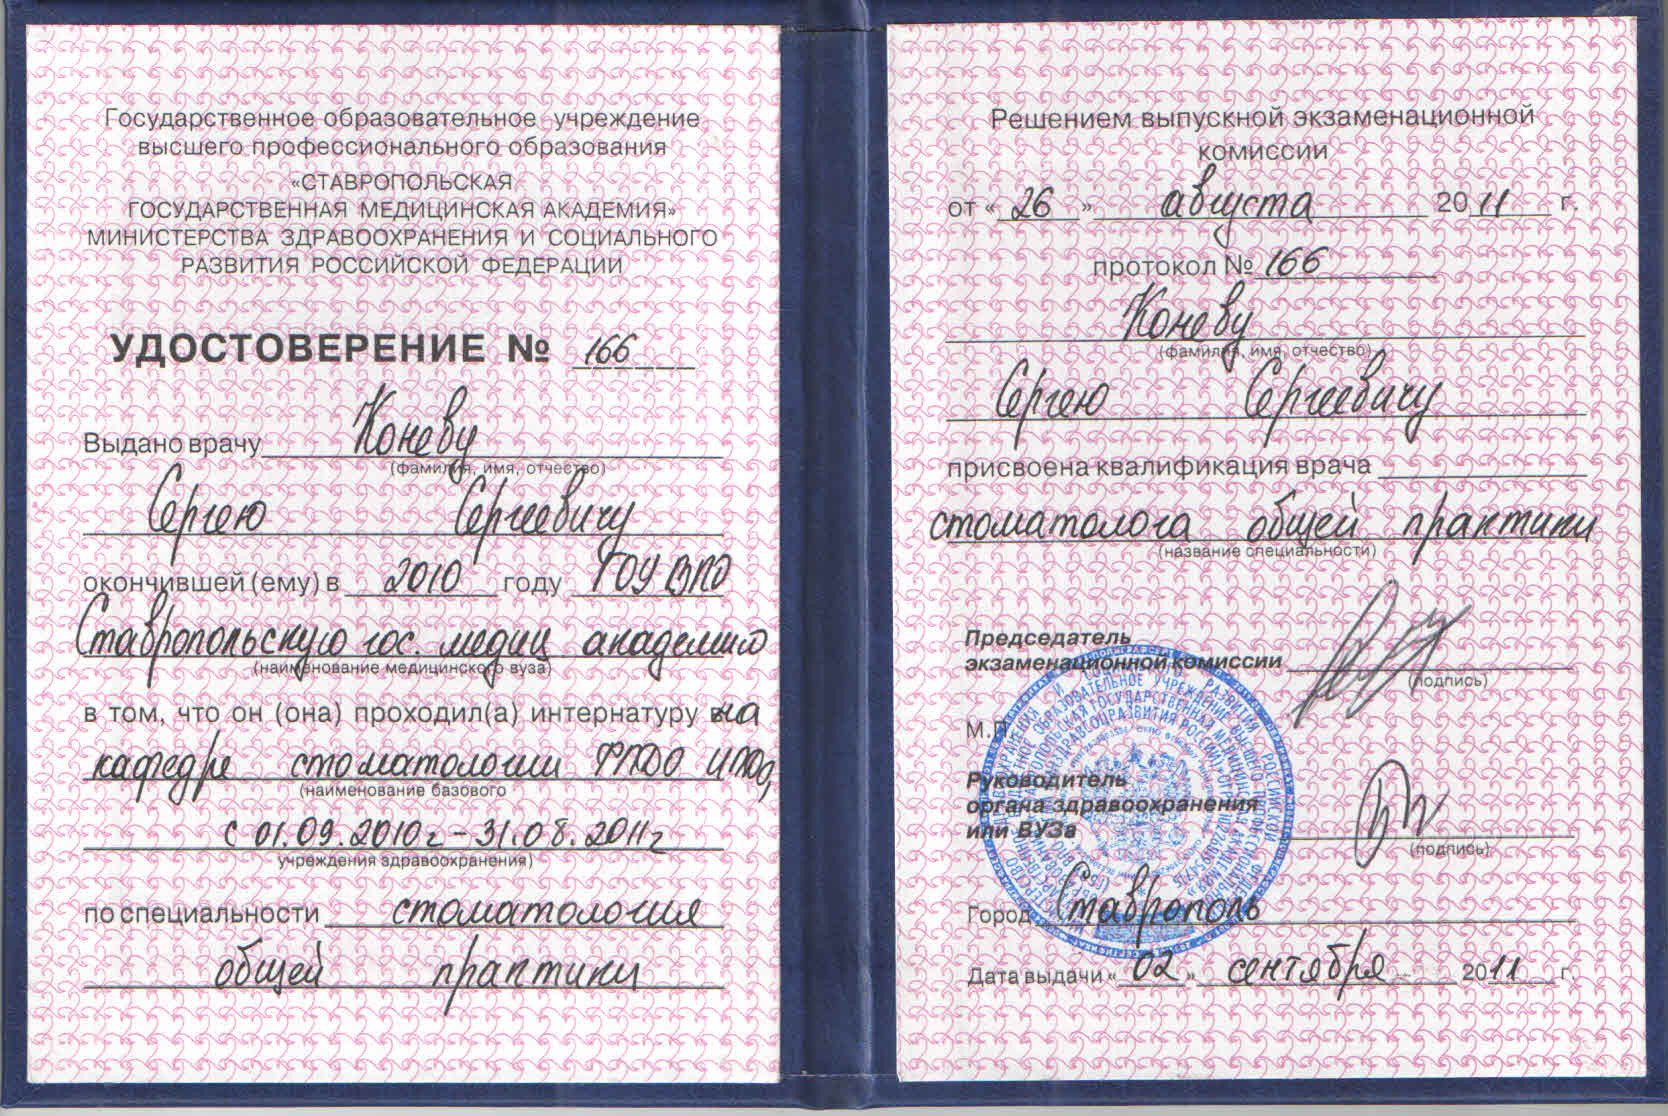 Государственное образовательное учреждение
высшего профессионального образования
«СТАВРОПОЛЬСКАЯ
ГОСУДАРСТВЕННАЯ МЕДИЦИНСКАЯ АКАДЕМИЯ»
МИНИСТЕРСТВА ЗДРАВООХРАНЕНИЯ И СОЦИАЛЬНОГО
РАЗВИТИЯ РОССИЙСКОЙ ФЕДЕРАЦИИ
УДОСТОВЕРЕНИЕ № 166
Выдано врачу Коневу
(фамилия, имя, отчество)
Сергею Сергеевичу
окончившей (ему) в 2010 году ГОУ ВПО
Ставропольскую гос. медиц академию
(наименование медицинского вуза)
в том, что он (она) проходил(а) интернатуру на
кафедре стоматологии ФПДО
(наименование базового
с 01.09.2010г – 31.08.2011г
учреждения здравоохранения)
по специальности стоматология
общей практики
Решением выпускной экзаменационной
комиссии
от « 26 » августа 2011 г.
протокол № 166
Коневу
(фамилия, имя, отчество)
Сергею Сергеевичу
присвоена квалификация врача
стоматолога общей практики
(название специальности)
Председатель
экзаменационной комиссии
(подпись)
М.П.
Руководитель
органа здравоохранения
или ВУЗа
(подпись)
Город Ставрополь
Дата выдачи « 02 » сентября 2011 г.